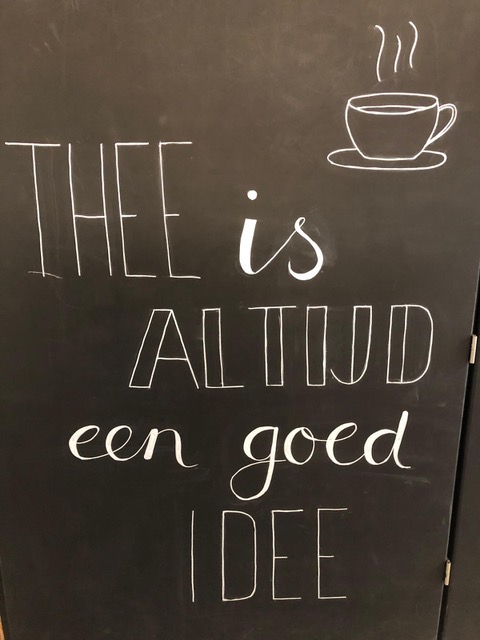 THEE is
ALTIJD
een goed
IDEE